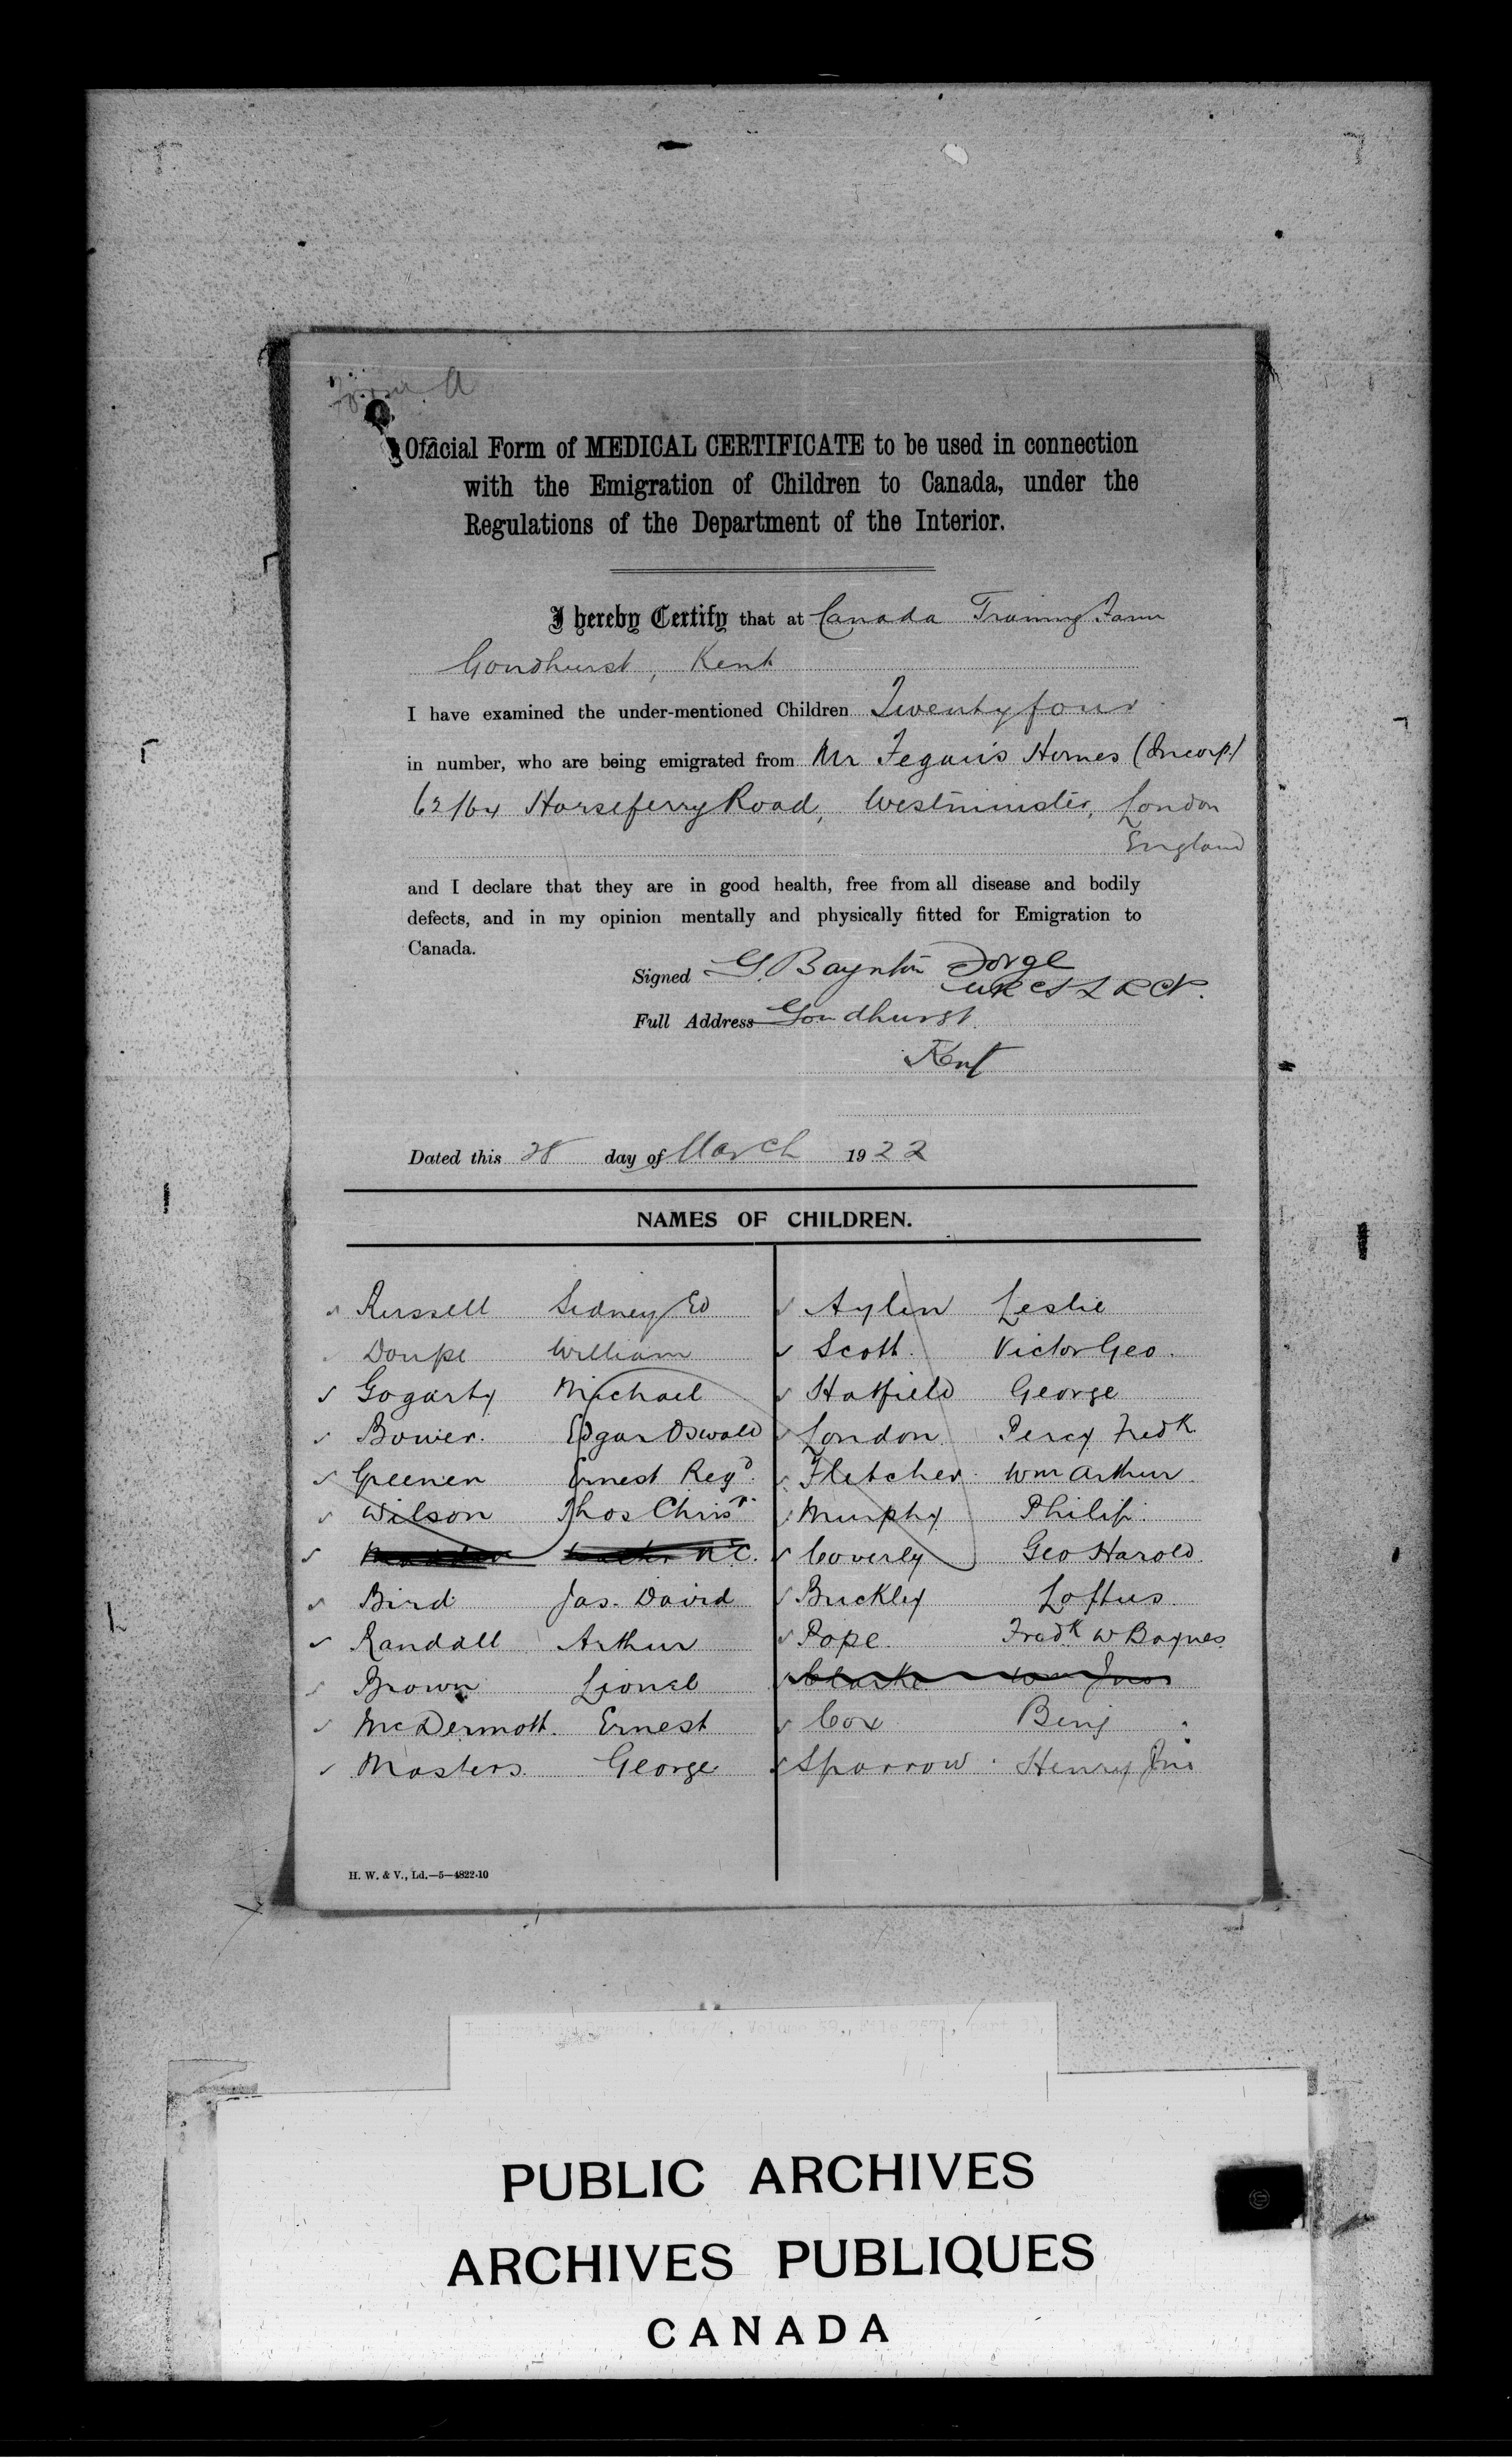 Form A
Official Form of MEDICAL CERTIFICATE to be used in connection
with the Emigration of Children to Canada, under the
Regulations of the Department of the Interior.
I hereby Certify that at Canada Training Farm
Goudhurst, Kent
I have examined the under-mentioned Children Twentyfour
in number, who are being emigrated from Mr Fegan's Homes (Incorp.)
62/64 Horseferry Road, Westminster, London
England
and I declare that they are in good health, free from all disease and bodily
defects, and in my opinion mentally and physically fitted for Emigration to
Canada.
Signed G. Baynton Forge
MRCS LRCP.
Full Address Goudhurst.
Kent
Dated this 28 day of March 1922
NAMES OF CHILDREN.
Russell Sidney Ed
Doupe William
Gogarty Michael
Bower. Edgar Oswald
Greener Ernest Regd.
Wilson Thos Chrisr.
Bird Jas. David
Randall Arthur
Brown Lionel
McDermott. Ernest
Masters. George
Aylen Leslie
Scott. Victor Geo.
Hatfield George
London. Percy Fredk.
Fletcher. Wm Arthur.
Murphy Philip.
Coverly Geo Harold.
Buckley Loftus.
Pope. Fredk W Baynes.
Clarke Wm Jno
Cox Benj
Sparrow. Henry Jno
H. W. & V., Ld.—5—4822-10
PUBLIC ARCHIVES
ARCHIVES PUBLIQUES
CANADA